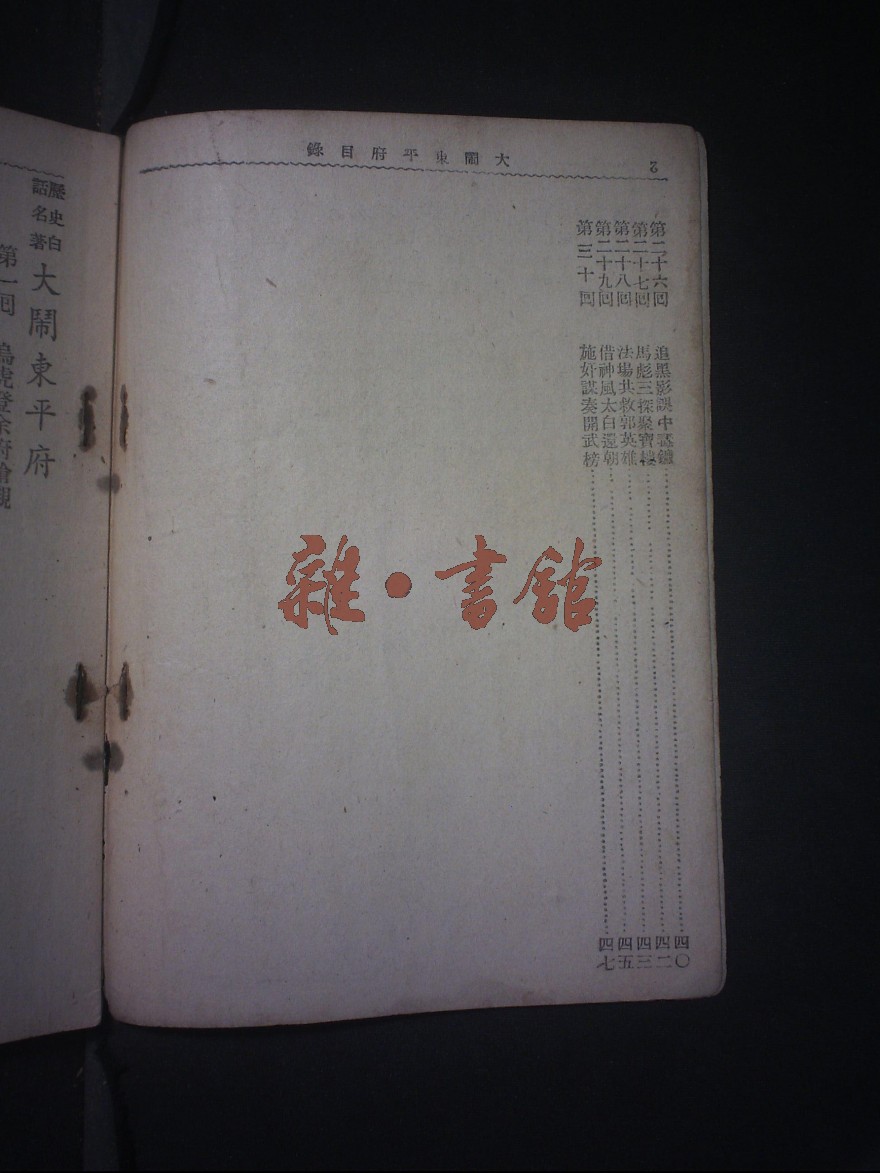 大鬧東平府目錄
2
第二十六回 追黑影誤中毒鏢 四〇
第二十七回 馬彪三探聚寶樓 四二
第二十八回 法場共救郭英雄 四三
第二十九回 借神風太白還朝 四五
第三十回 施奸謀奏開武榜 四七
雜·書館
歷史白話名著
大鬧東平府
第一回